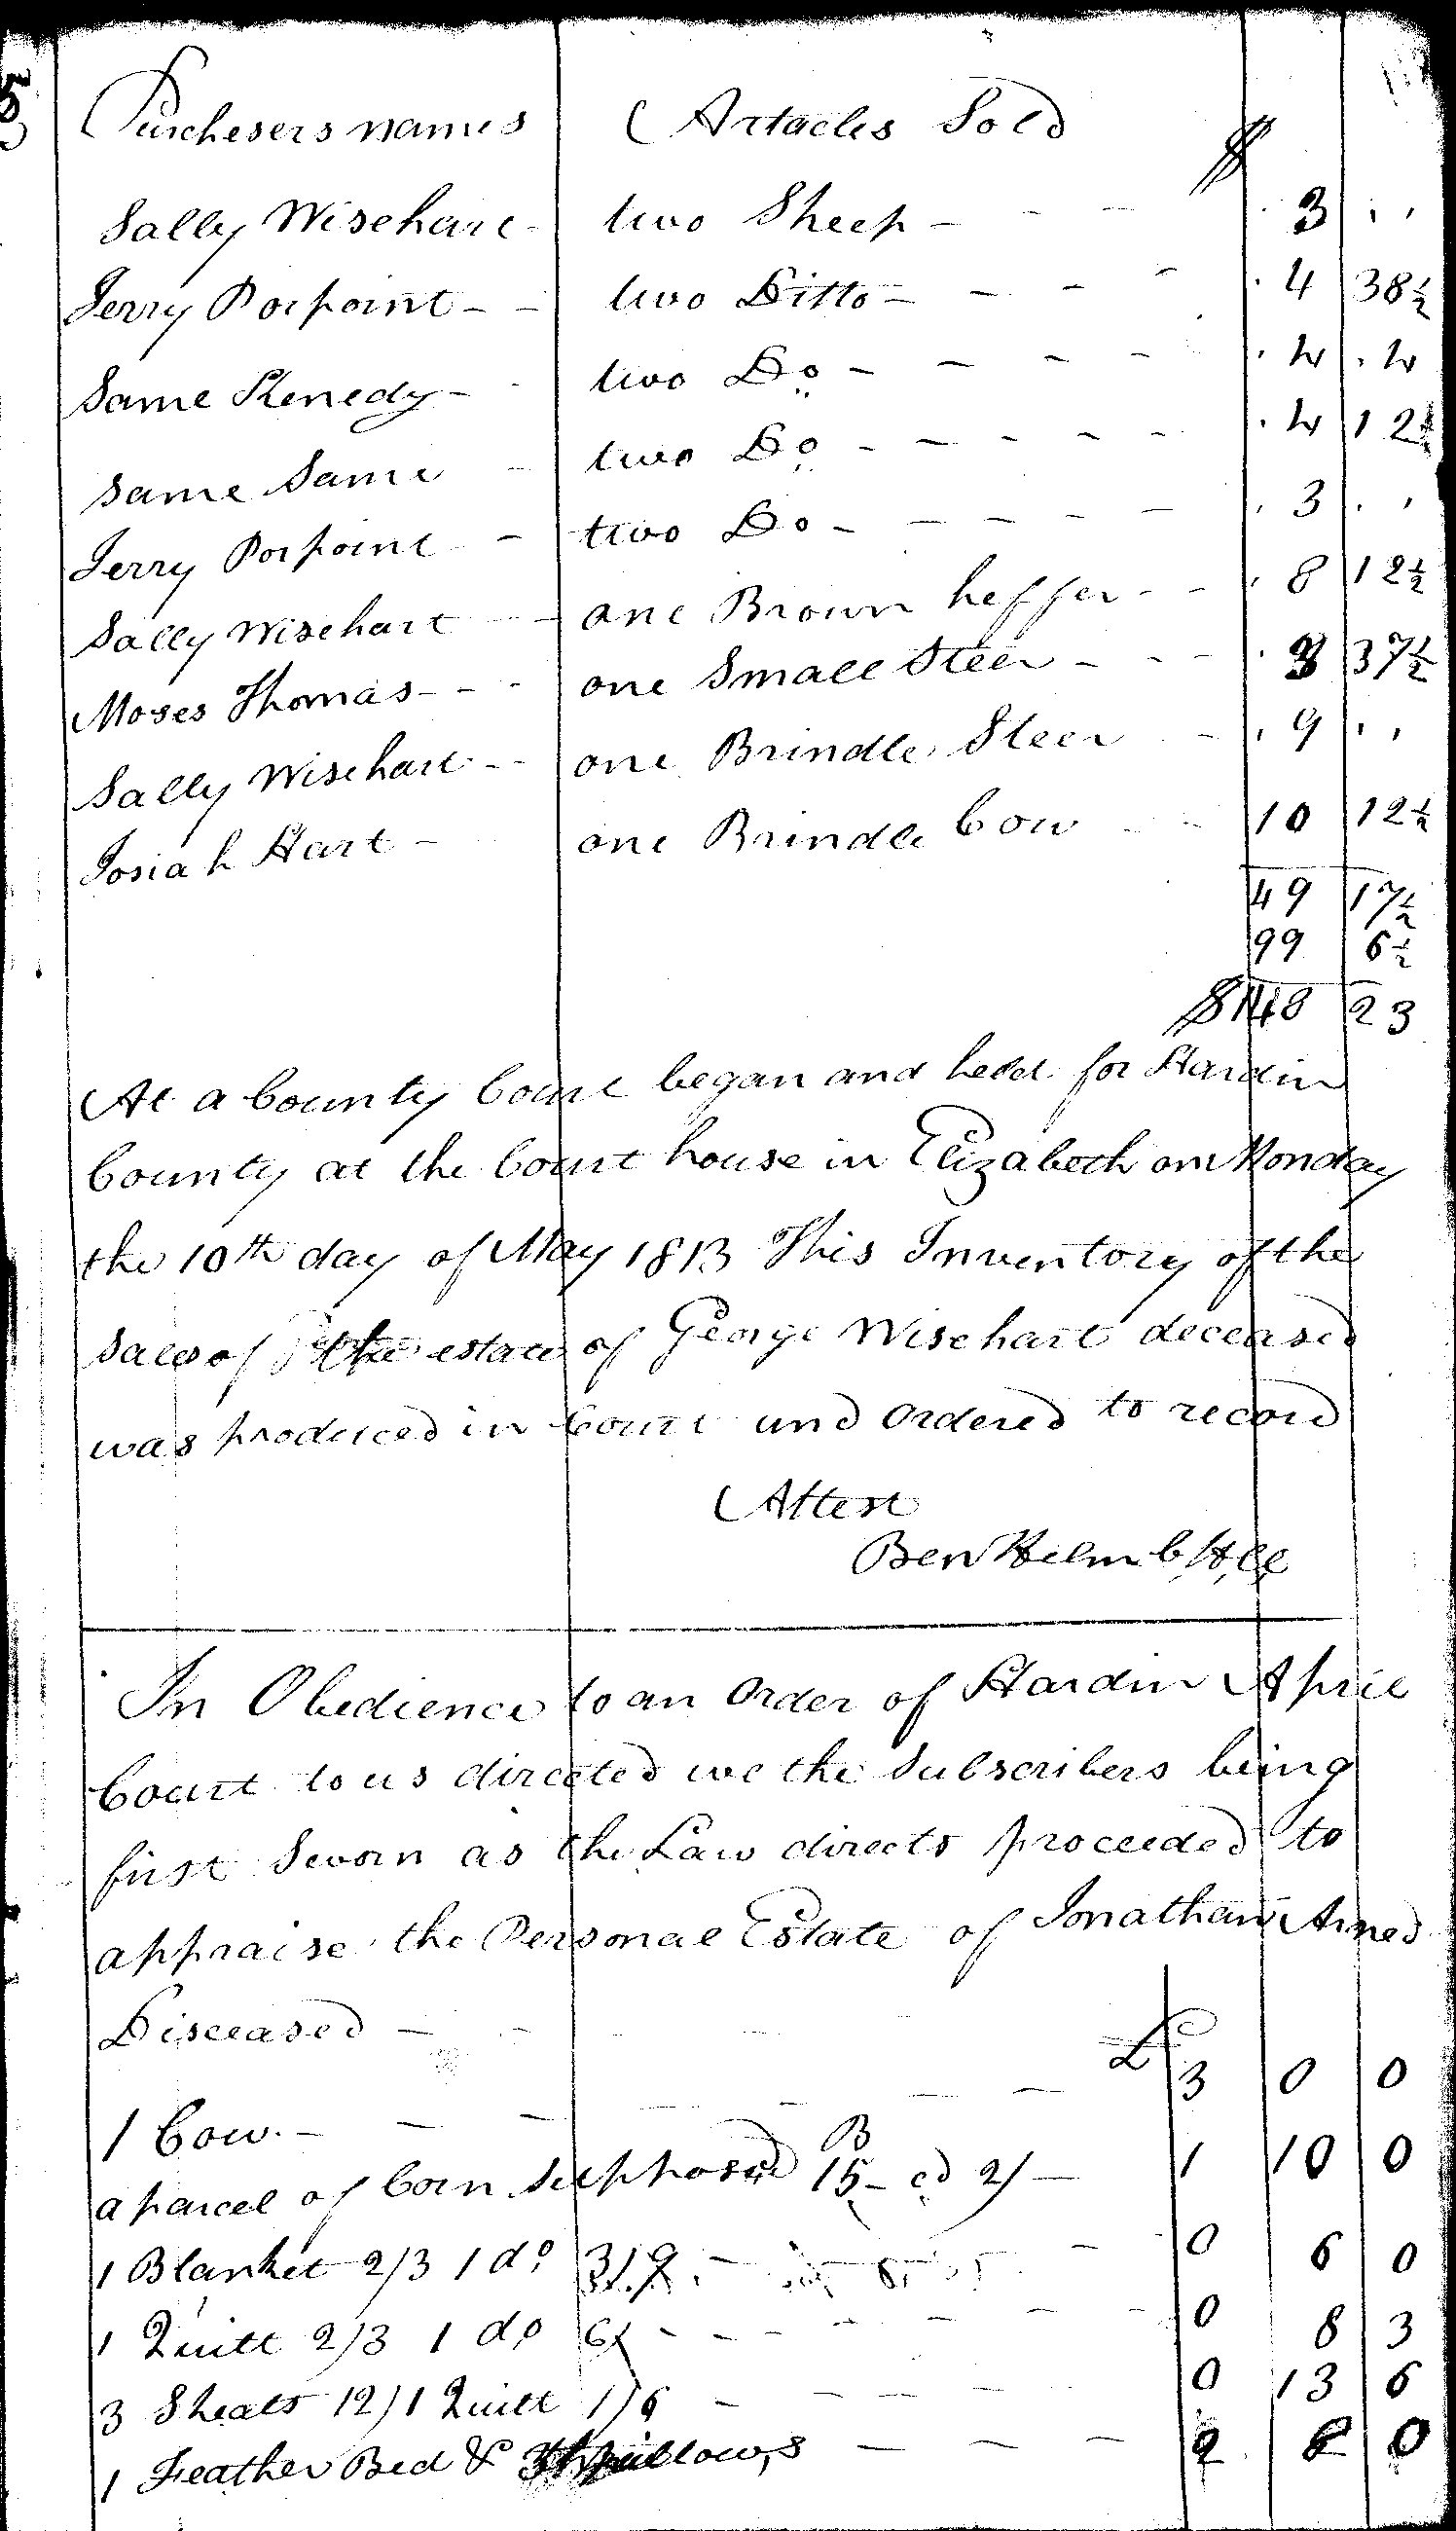 Purchesers names Artacles Sold $
Sally Wisehart - two Sheep - - - 3 . .
Jerry Porpoint - - two Ditto - - - - 4 38½
Same Kenedy - two Do - - - - 4 . 4
same Same - two Do - - - - - 4 12½
Jerry Porpoint - two Do - - - - - 3 . .
Sally Wisehart - one Brown heffer - - 8 12½
Moses Thomas - - - one Small Steer - - - 3 37½
Sally Wisehart - - one Brindle Steer - 9 . .
Josiah Hart - one Brindle Cow - - 10 12½
49 17½
99 6½
$148 23
At a County Court began and held for Hardin
County at the Court house in Elizabeth on Monday
the 10th day of May 1813 This Inventory of the
sales of the estate of George Wisehart deceased
was produced in Court and Ordered to record
Attest
Ben Helm C,H,CC
In Obedience to an Order of Hardin April
Court to us directed we the Subscribers being
first Sworn as the Law directs proceeded to
appraise the Personal Estate of Jonathan Ames
Disceased - - £
1 Cow - - - - - - 3 0 0
a parcel of Corn Supposed 15 B - @ 2/ - 1 10 0
1 Blanket 2/3 1 do 3/9 - - 0 6 0
1 Quilt 2/3 1 do 6/ - - - - - - - 0 8 3
3 Sheats 12/ 1 Quilt 1/6 - - - - 0 13 6
1 Feather Bed & pillows - - - 2 0